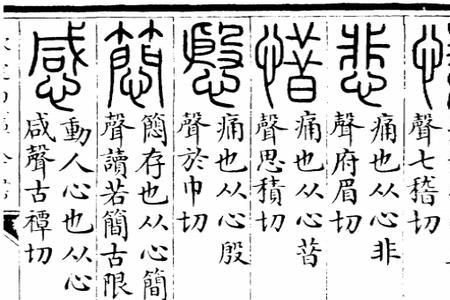 聲七稽切
悲
痛也从心非
聲府眉切
惜
痛也从心昔
聲思積切
慇
痛也从心殷
聲於巾切
存也从心簡
聲讀若簡古限切
感
動人心也从心
咸聲古禫切